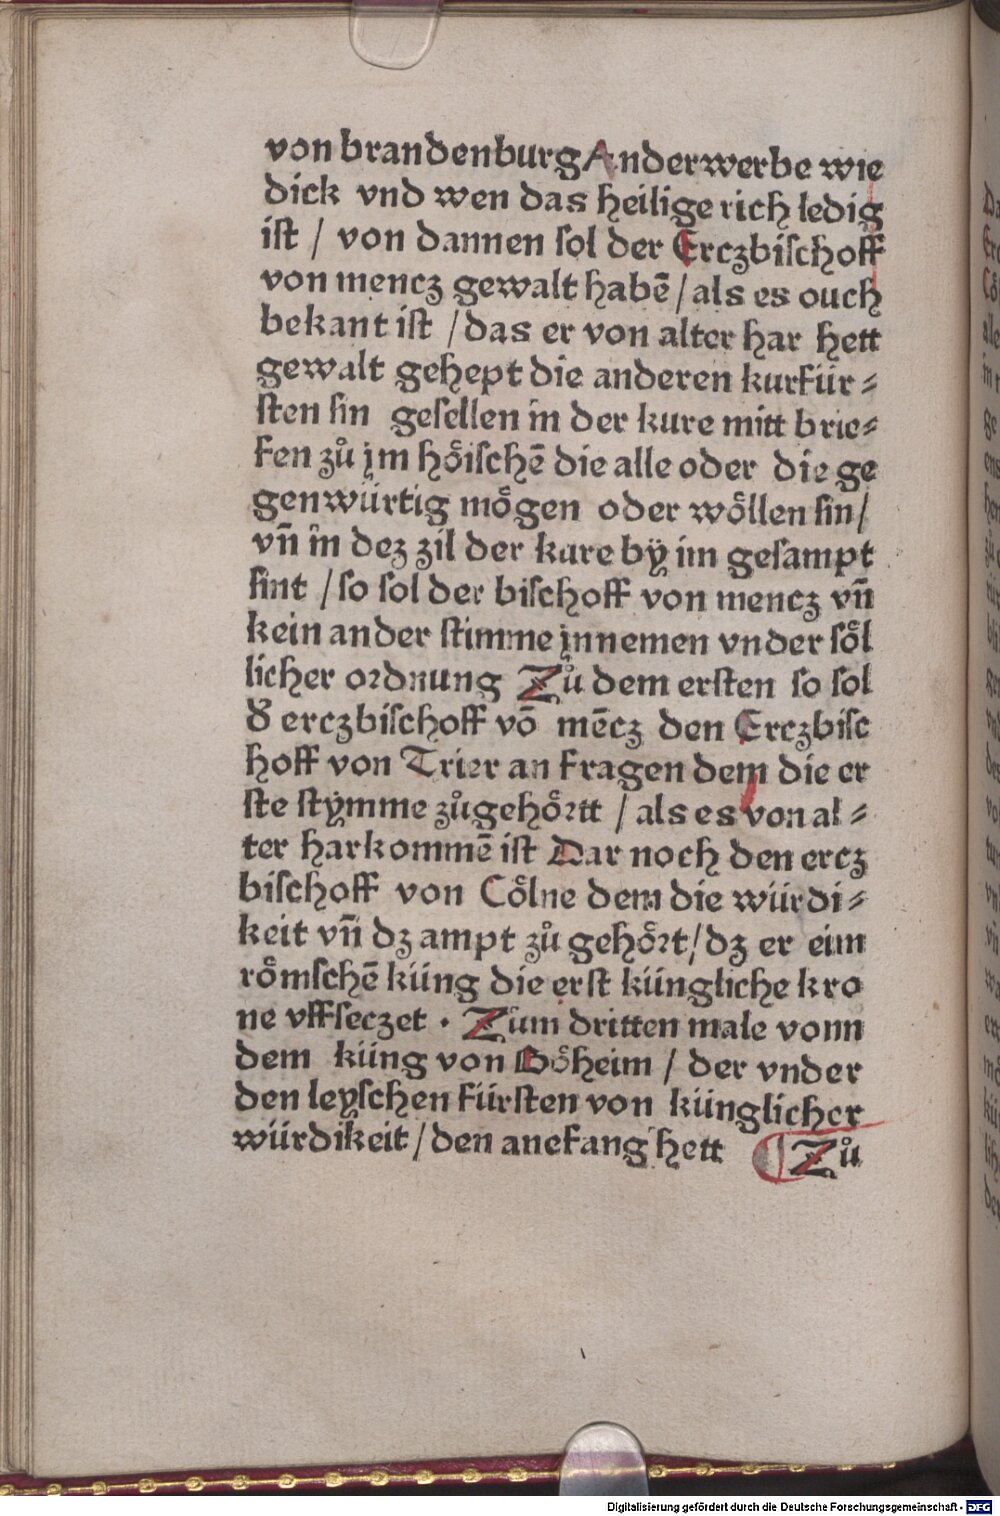 von brandenburg Anderwerbe wie
dick vnd wen das heilige rich ledig
ist / von dannen sol der Erczbischoff
von mencz gewalt habē / als es ouch
bekant ist / das er von alter har hett
gewalt gehept die anderen kurfür⸗
sten sin gesellen in der kure mitt brie⸗
fen zů jm höischē die alle oder die ge
genwürtig mögen oder wöllen sin /
vn̄ in dez zil der kure bÿ im gesampt
sint / so sol der bischoff von mencz vn̄
kein ander stimme jnnemen vnder söl
licher ordnung Zů dem ersten so sol
d' erczbischoff vō mēcz den Erczbisc
hoff von Trier an fragen dem die er
ste stÿmme zůgehörtt / als es von al⸗
ter harkommē ist Dar noch den ercz
bischoff von Cölne dem die würdi⸗
keit vn̄ dz ampt zů gehört / dz er eim
römschē küng die erst küngliche kro
ne vffseczet · Zum dritten male vonn
dem küng von Böheim / der vnder
den leyschen fürsten von künglicher
würdikeit / den anefang hett ¶ Zů
Digitalisierung gefördert durch die Deutsche Forschungsgemeinschaft - DFG